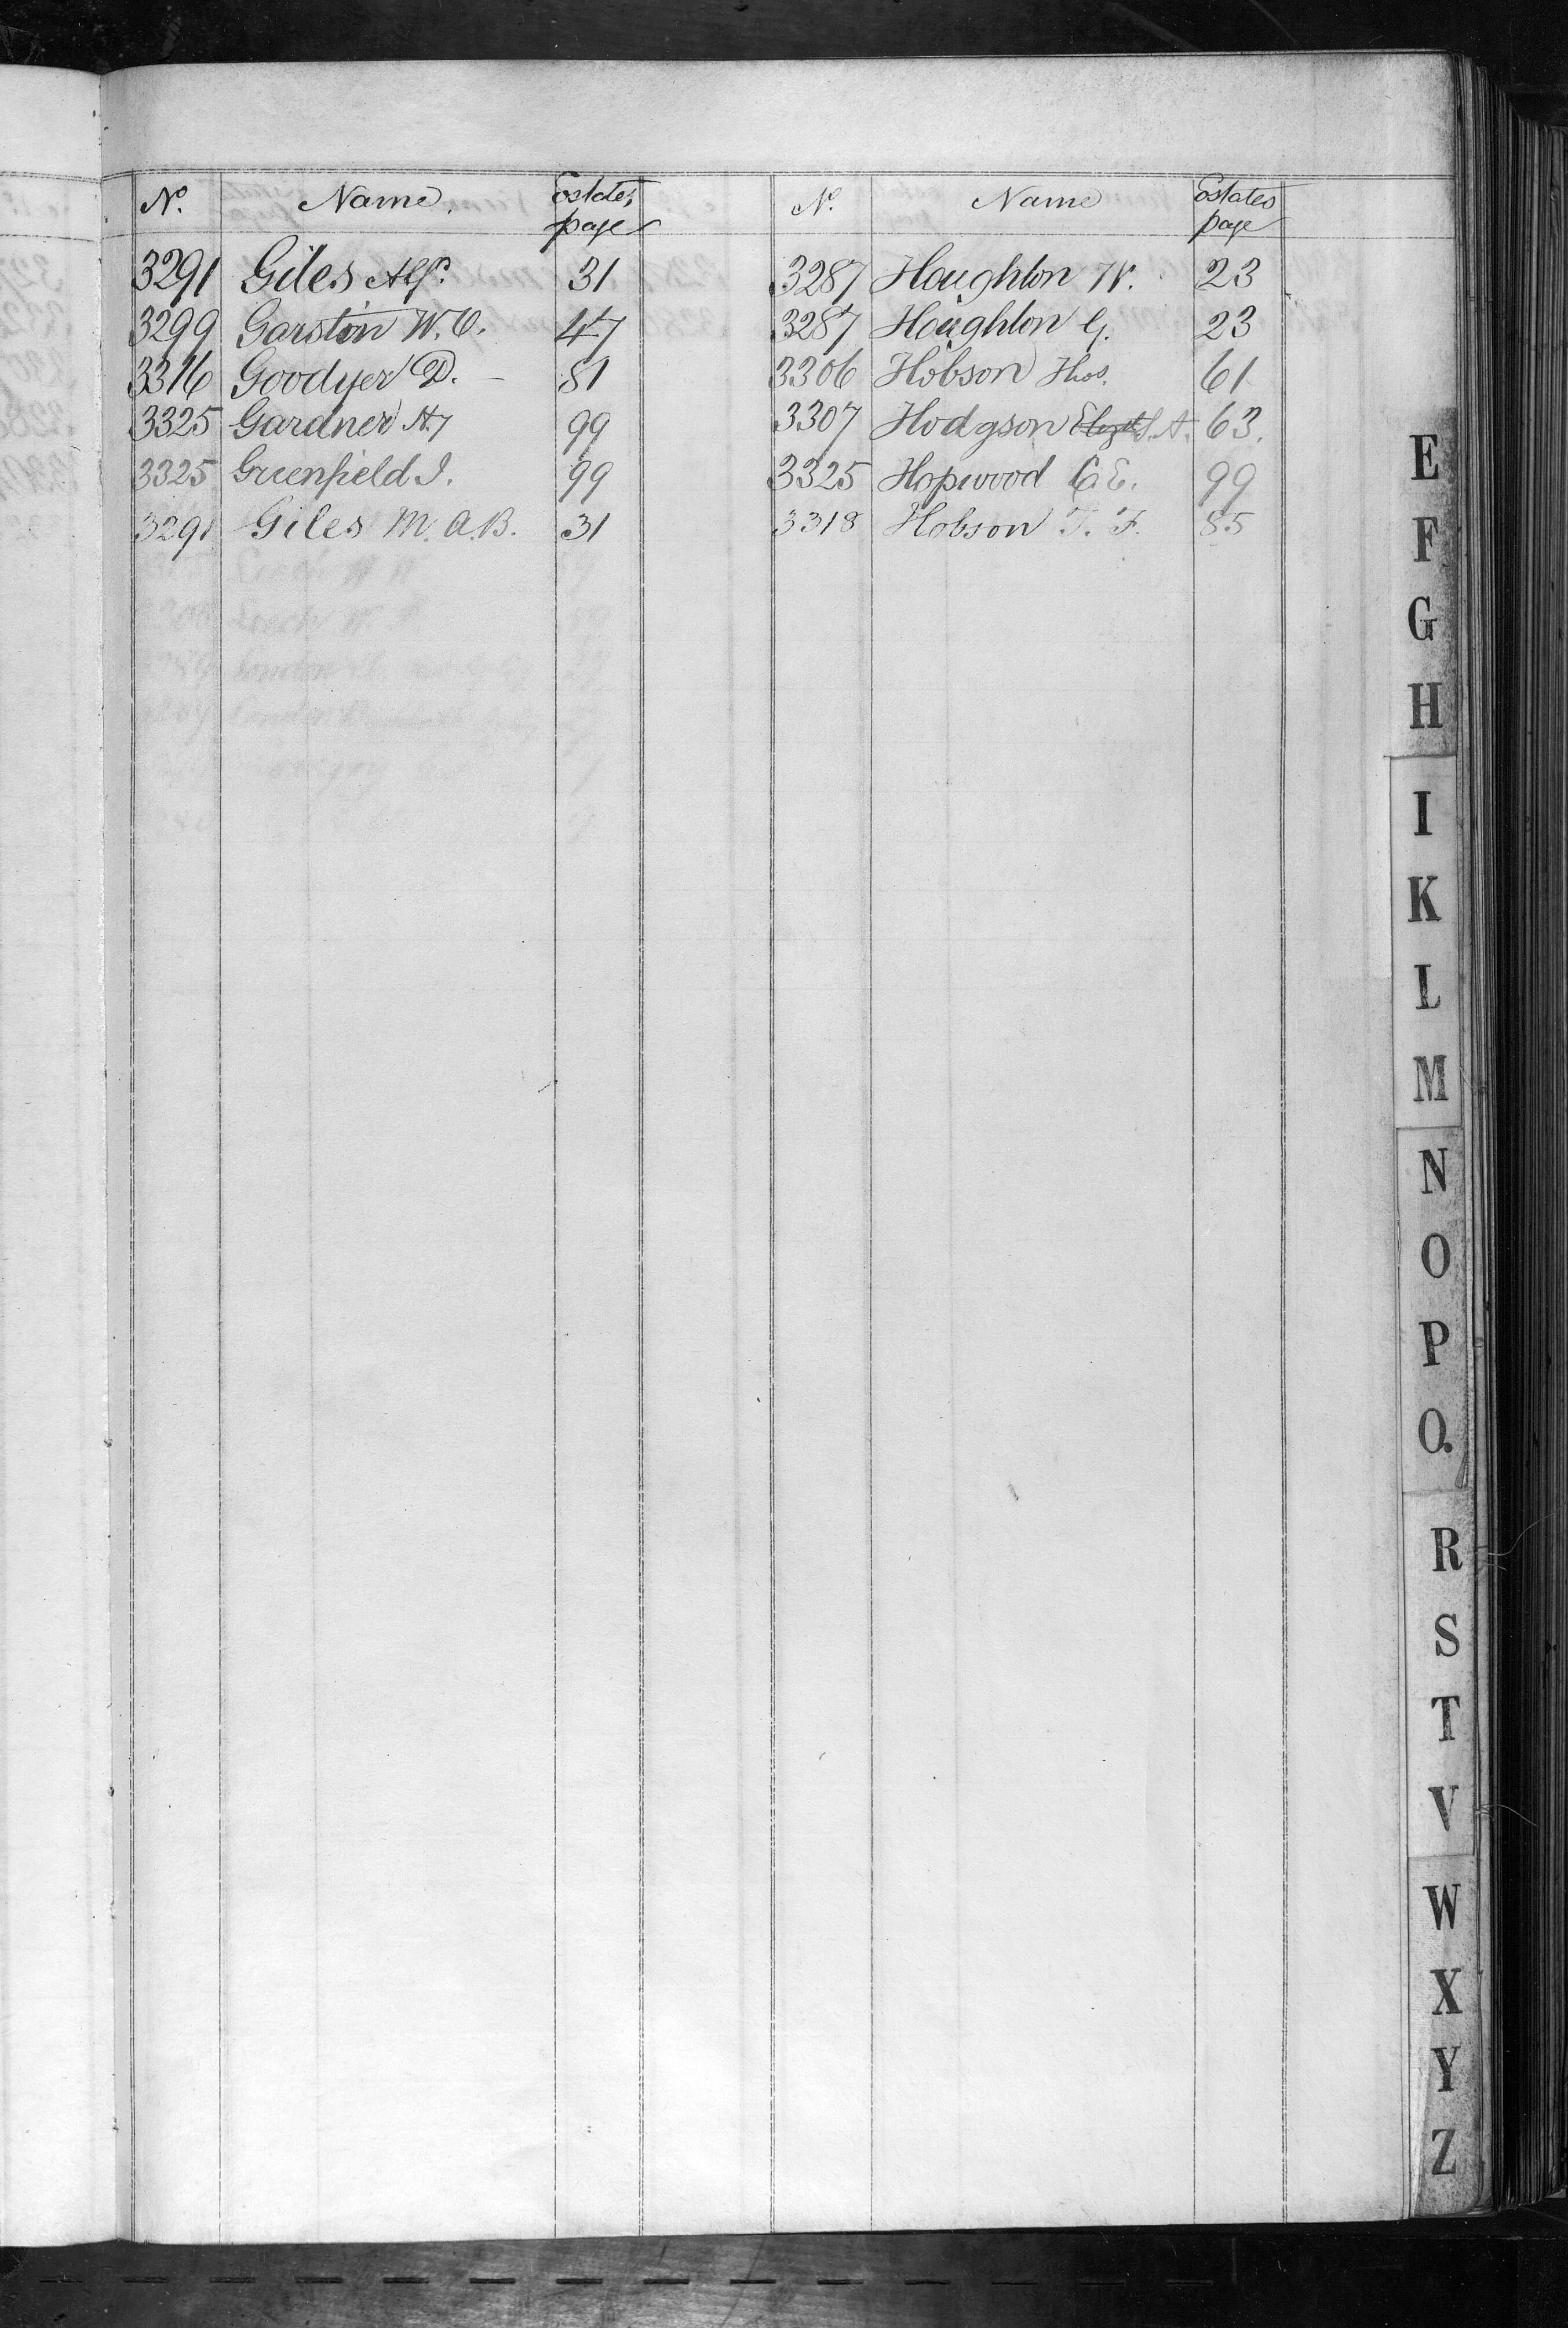 No. Name. Estates page
3291 Giles Alfd. 31
3299 Garston W. O. 47
3316 Goodyer D. — 81
3325 Gardner Ay 99
3325 Greenfield J. 99
3291 Giles M. A. B. 31
No. Name Estates page
3287 Houghton W. 23
3287 Houghton G. 23
3306 Hobson Thos. 61
3307 Hodgson Elizth S. A. 63.
3325 Hopwood C E. 99
3318 Hobson T. F. 85
E
F
G
H
I
K
L
M
N
O
P
Q.
R
S
T
V
W
X
Y
Z